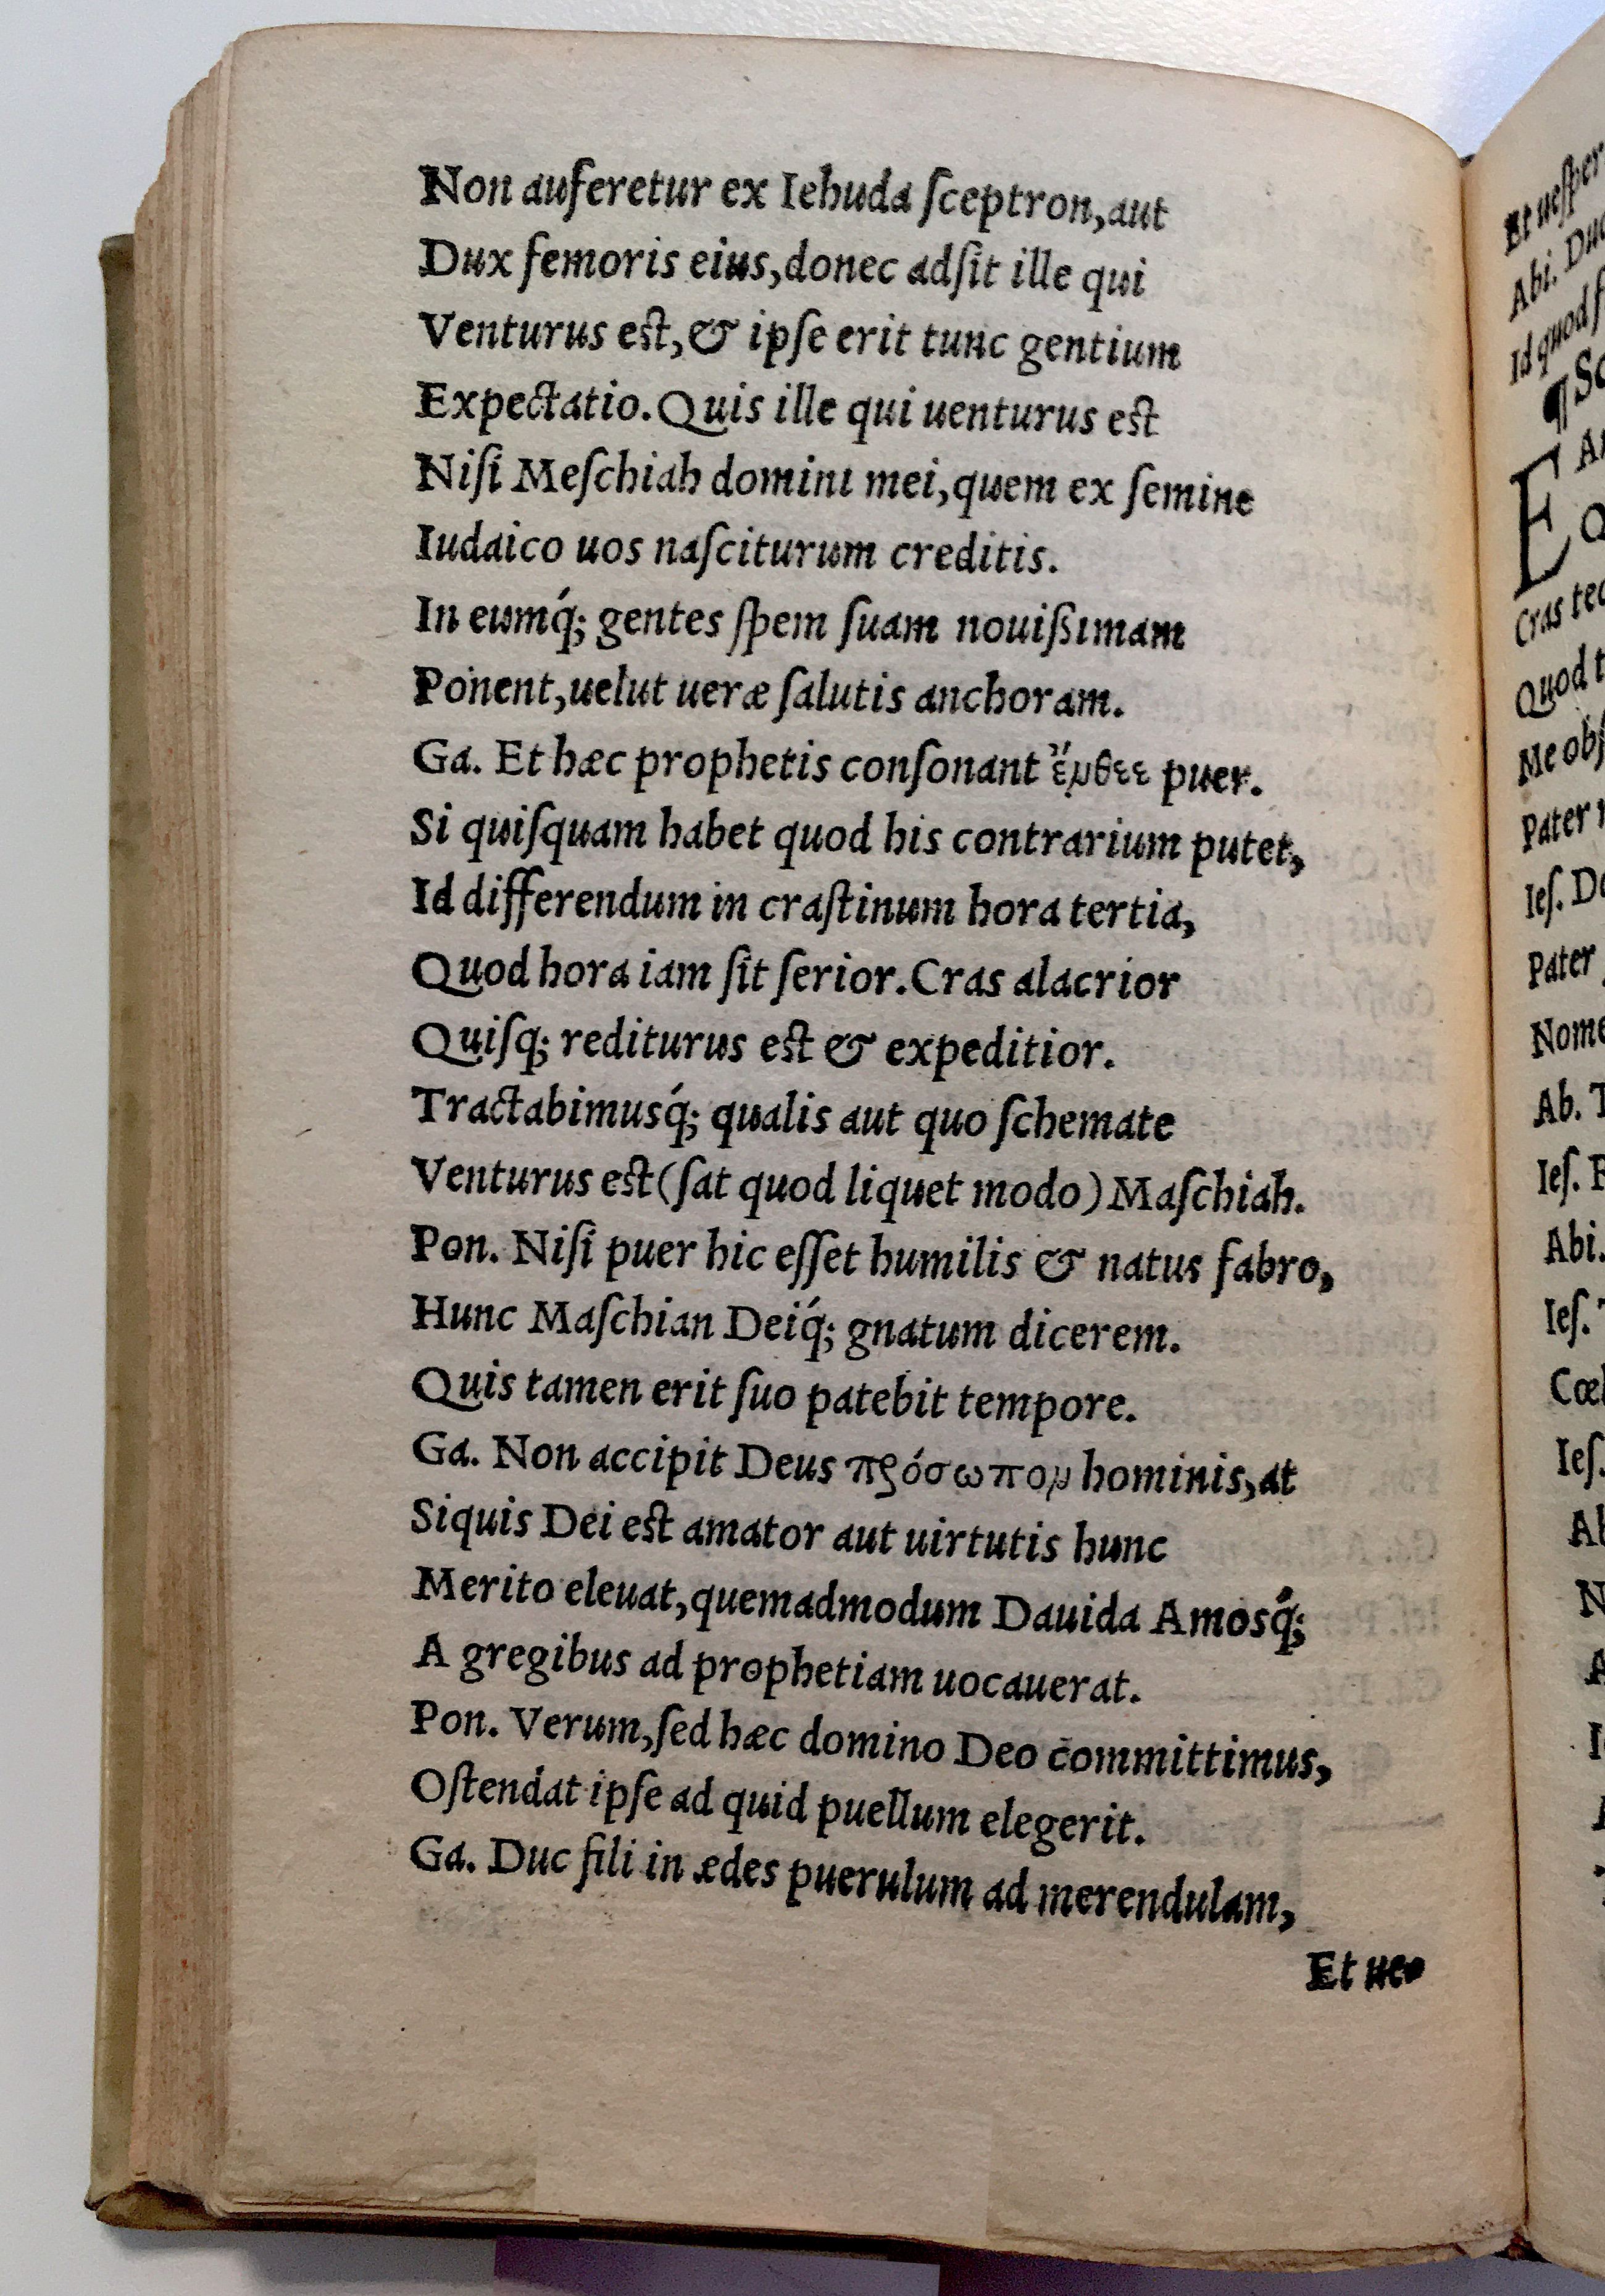 Non auferetur ex Iehuda ſceptron, aut
Dux femoris eius, donec adſit ille qui
Venturus est, & ipſe erit tunc gentium
Expectatio. Quis ille qui uenturus est
Niſi Meſchiah domini mei, quem ex ſemine
Iudaico uos naſciturum creditis.
In eumq́; gentes ſpem ſuam nouißimam
Ponent, uelut ueræ ſalutis anchoram.
Ga. Et hæc prophetis conſonant ἔνθεε puer.
Si quiſquam habet quod his contrarium putet,
Id differendum in craſtinum hora tertia,
Quod hora iam ſit ſerior. Cras alacrior
Quiſq; rediturus est & expeditior.
Tractabimusq́; qualis aut quo ſchemate
Venturus est (ſat quod liquet modo) Maſchiah.
Pon. Niſi puer hic eſſet humilis & natus fabro,
Hunc Maſchian Deiq́; gnatum dicerem.
Quis tamen erit ſuo patebit tempore.
Ga. Non accipit Deus πρόσωπον hominis, at
Siquis Dei est amator aut uirtutis hunc
Merito eleuat, quemadmodum Dauida Amosq́;
A gregibus ad prophetiam uocauerat.
Pon. Verum, ſed hæc domino Deo committimus,
Oſtendat ipſe ad quid puellum elegerit.
Ga. Duc fili in ædes puerulum ad merendulam,
Et ue
Et ueſper
Abi. Duc
Id quod
¶ Sc
E
Cras tec
Quod t
Me obſ
Pater
Ieſ. De
Pater
Nome
Ab. T
Ieſ.
Abi.
Ieſ.
Cœl
Ieſ.